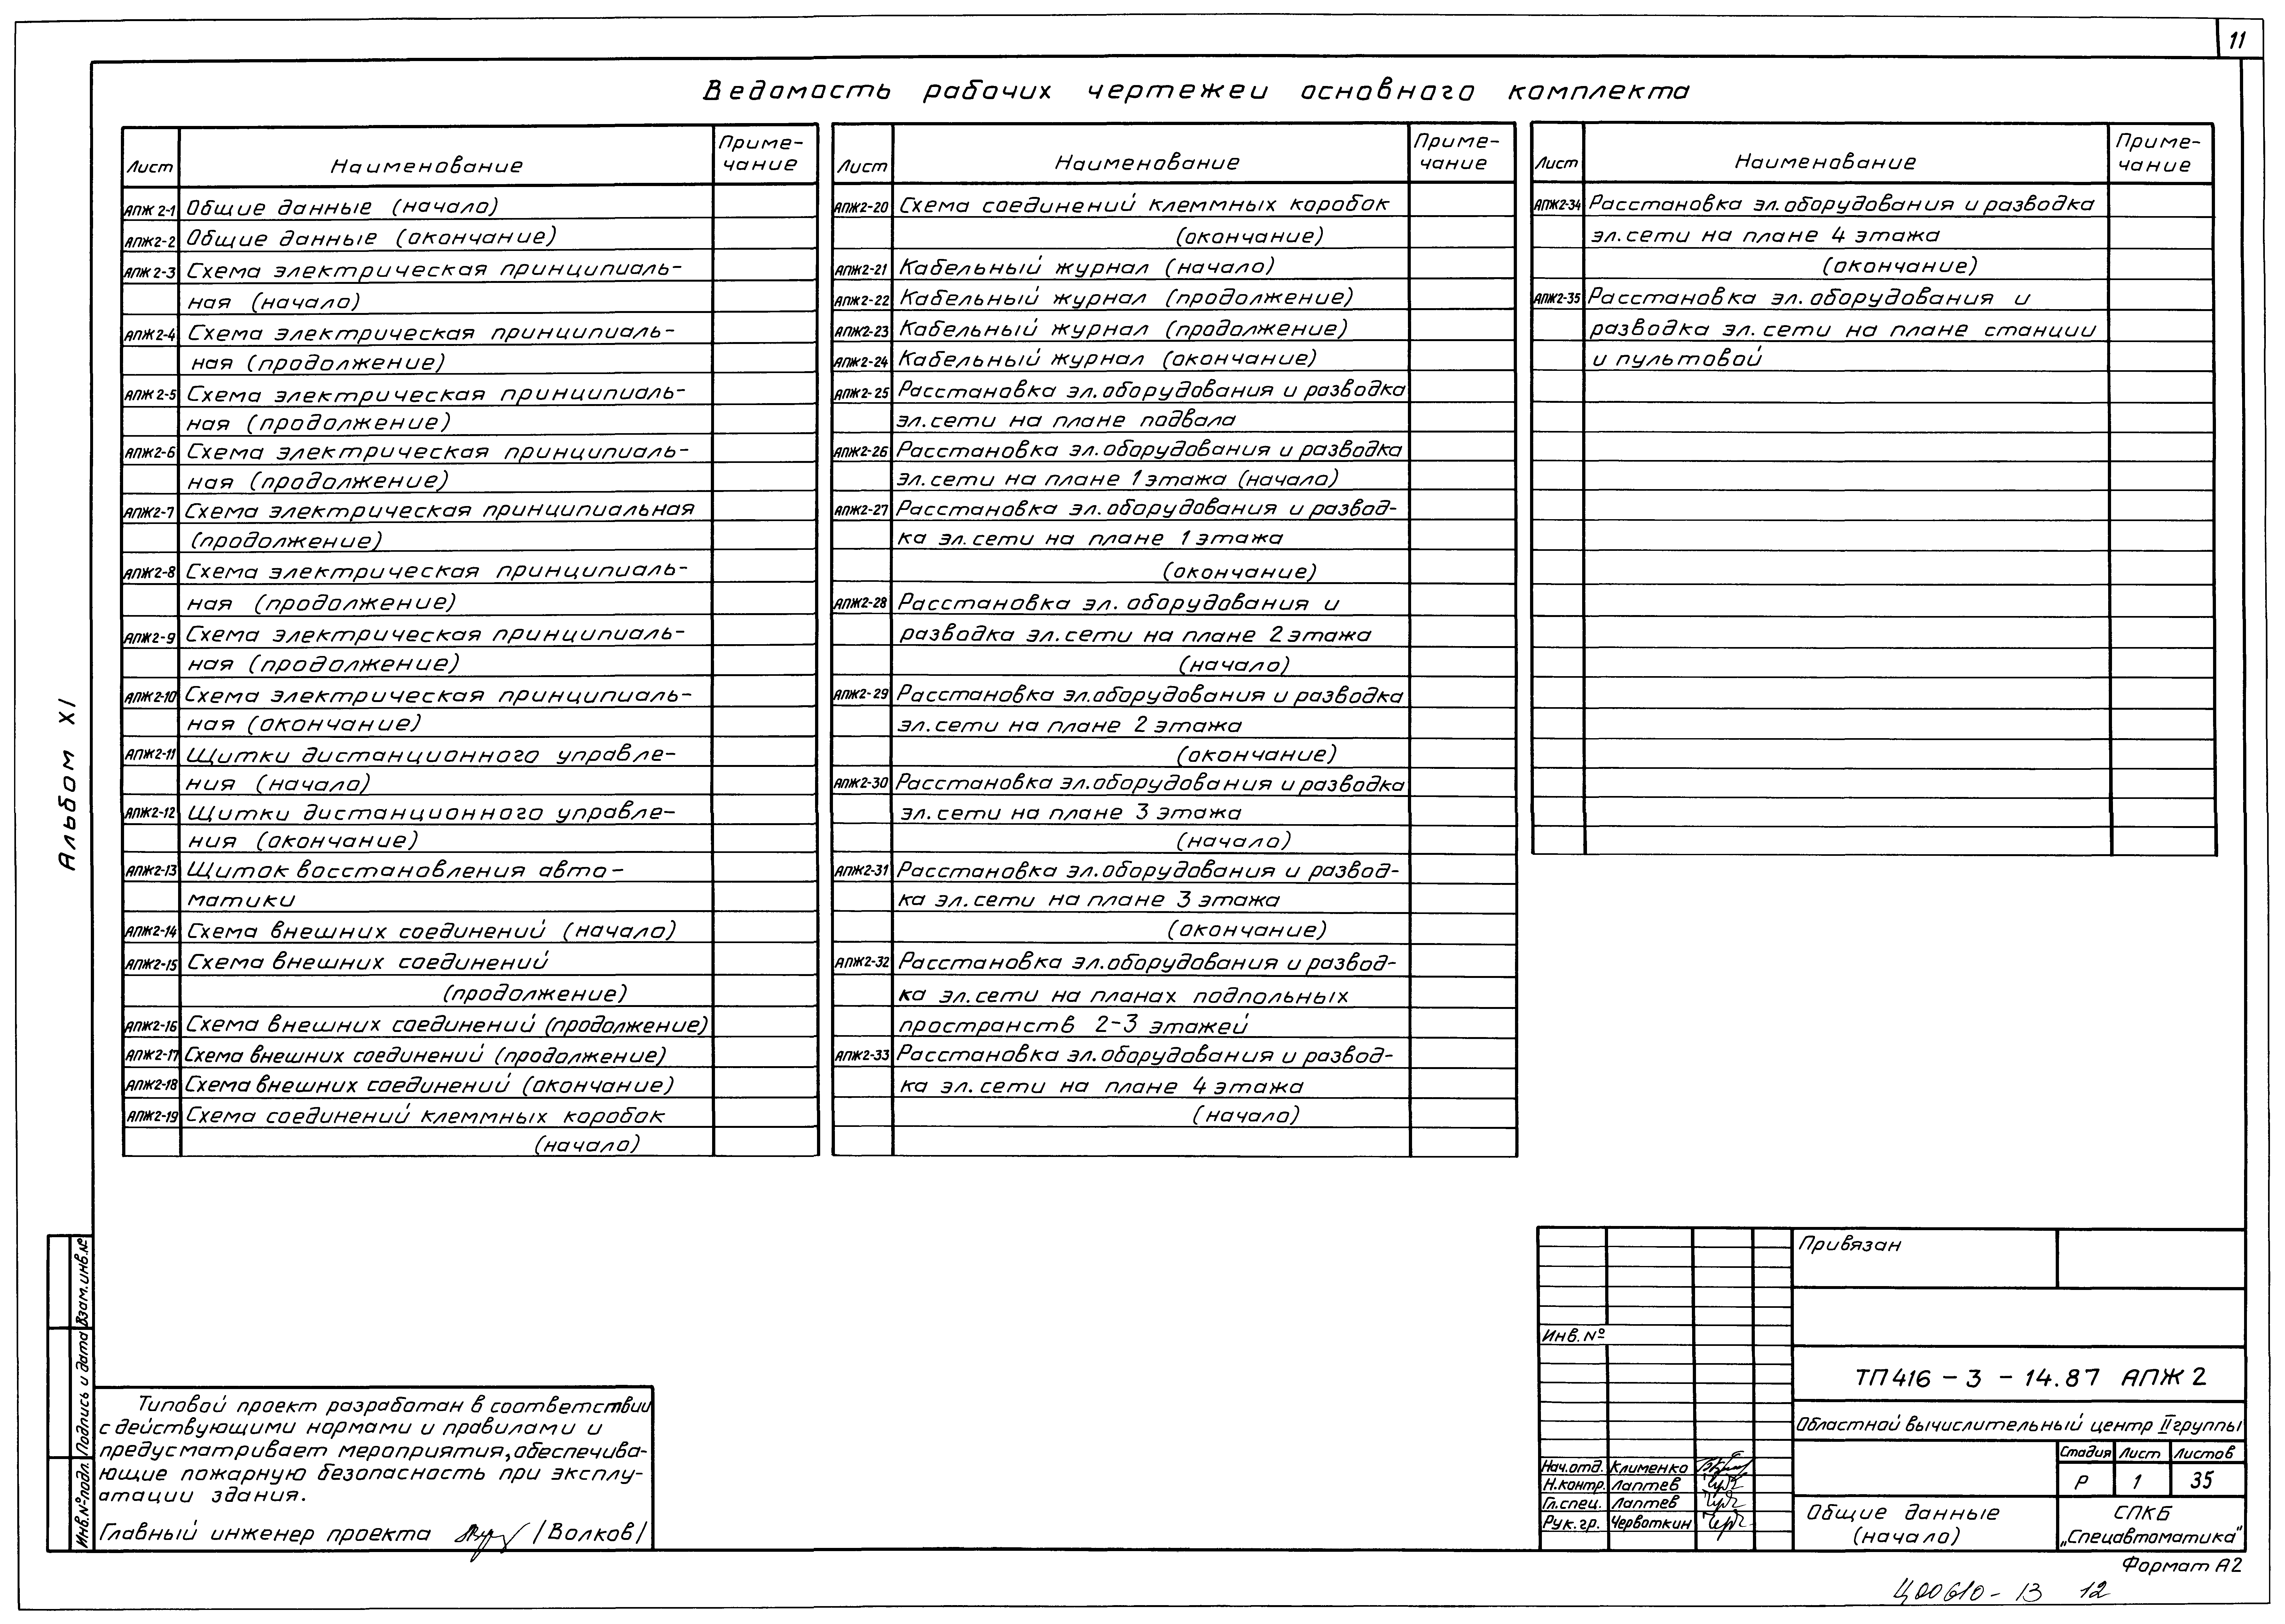 11
Ведомость рабочих чертежеи основного комплекта
Лист Наименование Приме-
чание
АПЖ2-1 Общие данные (начало)
АПЖ2-2 Общие данные (окончание)
АПЖ2-3 Схема электрическая принципиаль-
ная (начало)
АПЖ2-4 Схема электрическая принципиаль-
ная (продолжение)
АПЖ2-5 Схема электрическая принципиаль-
ная (продолжение)
АПЖ2-6 Схема электрическая принципиаль-
ная (продолжение)
АПЖ2-7 Схема электрическая принципиальная
(продолжение)
АПЖ2-8 Схема электрическая принципиаль-
ная (продолжение)
АПЖ2-9 Схема электрическая принципиаль-
ная (продолжение)
АПЖ2-10 Схема электрическая принципиаль-
ная (окончание)
АПЖ2-11 Щитки дистанционного управле-
ния (начало)
АПЖ2-12 Щитки дистанционного управле-
ния (окончание)
АПЖ2-13 Щиток восстановления авто-
матики
АПЖ2-14 Схема внешних соединений (начало)
АПЖ2-15 Схема внешних соединений
(продолжение)
АПЖ2-16 Схема внешних соединений (продолжение)
АПЖ2-17 Схема внешних соединений (продолжение)
АПЖ2-18 Схема внешних соединений (окончание)
АПЖ2-19 Схема соединений клеммных коробок
(начало)
Лист Наименование Приме-
чание
АПЖ2-20 Схема соединений клеммных коробок
(окончание)
АПЖ2-21 Кабельный журнал (начало)
АПЖ2-22 Кабельный журнал (продолжение)
АПЖ2-23 Кабельный журнал (продолжение)
АПЖ2-24 Кабельный журнал (окончание)
АПЖ2-25 Расстановка эл.оборудования и разводка
эл.сети на плане подвала
АПЖ2-26 Расстановка эл.оборудования и разводка
эл.сети на плане 1 этажа (начало)
АПЖ2-27 Расстановка эл.оборудования и развод-
ка эл.сети на плане 1 этажа
(окончание)
АПЖ2-28 Расстановка эл. оборудования и
разводка эл.сети на плане 2 этажа
(начало)
АПЖ2-29 Расстановка эл.оборудования и разводка
эл.сети на плане 2 этажа
(окончание)
АПЖ2-30 Расстановка эл.оборудования и разводка
эл.сети на плане 3 этажа
(начало)
АПЖ2-31 Расстановка эл.оборудования и развод-
ка эл.сети на плане 3 этажа
(окончание)
АПЖ2-32 Расстановка эл.оборудования и развод-
ка эл.сети на планах подпольных
пространств 2-3 этажей
АПЖ2-33 Расстановка эл.оборудования и развод-
ка эл.сети на плане 4 этажа
(начало)
Лист Наименование Приме-
чание
АПЖ2-34 Расстановка эл.оборудования и разводка
эл.сети на плане 4 этажа
(окончание)
АПЖ2-35 Расстановка эл.оборудования и
разводка эл.сети на плане станции
и пультовой
Альбом XI
Взам.инв.№
Подпись и дата
Инв.№подл.
Типовой проект разработан в соответствии
с действующими нормами и правилами и
предусматривает мероприятия, обеспечива-
ющие пожарную безопасность при эксплу-
атации здания.
Главный инженер проекта /Волков/
Привязан
Инв.№
ТП416-3-14.87 АПЖ2
Областной вычислительный центр II группы
Стадия Лист Листов
Р 1 35
Нач.отд. Клименко
Н.контр. Лаптев
Гл.спец. Лаптев
Рук.гр. Червоткин
Общие данные
(начало)
СПКБ
„Спецавтоматика"
Формат А2
Ц00610-13 12